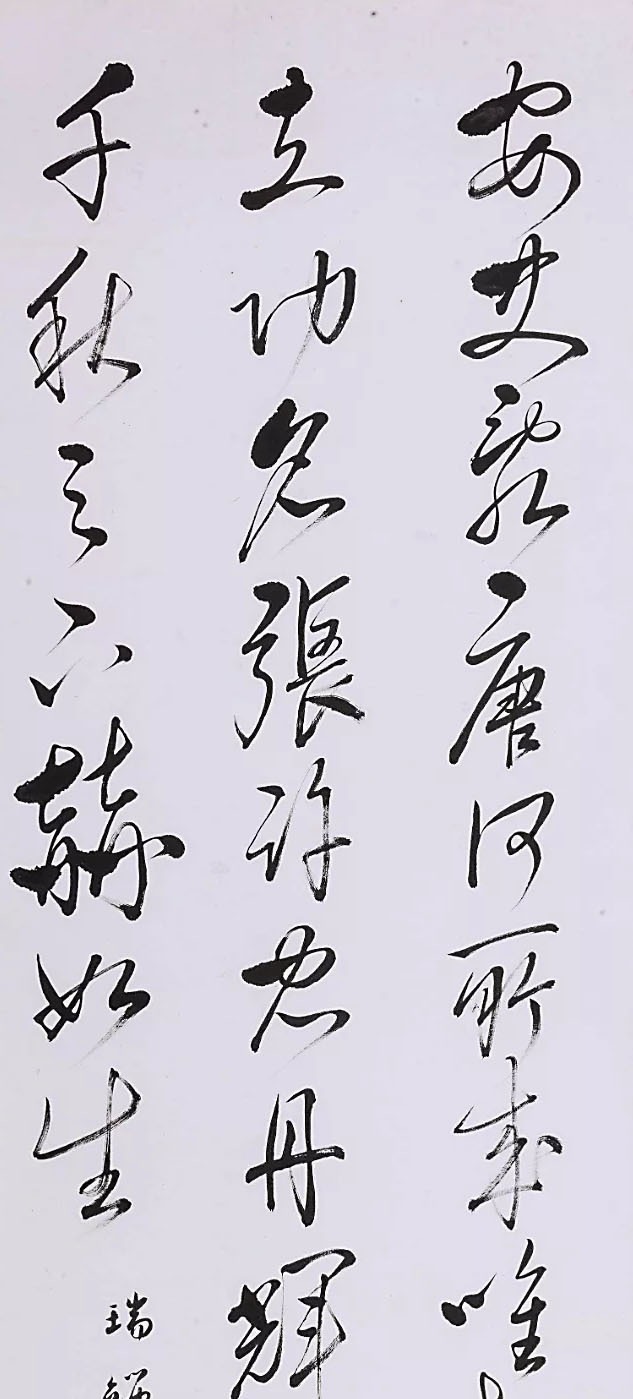 安史亂唐何所成唯
立功名張許忠丹輝
千秋之下赫如生
瑞